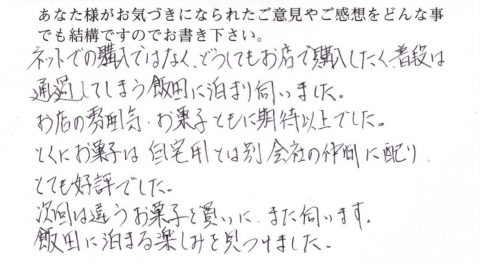 あなた様がお気づきになられたご意見やご感想をどんな事
でも結構ですのでお書き下さい。
ネットでの購入ではなく、どうしてもお店で購入したく、普段は
通過してしまう飯田に泊まり伺いました。
お店の雰囲気、お菓子ともに期待以上でした。
とくにお菓子は自宅用とは別会社の仲間に配り、
とても好評でした。
次回は違うお菓子を買いに、また伺います。
飯田に泊まる楽しみを見つけました。